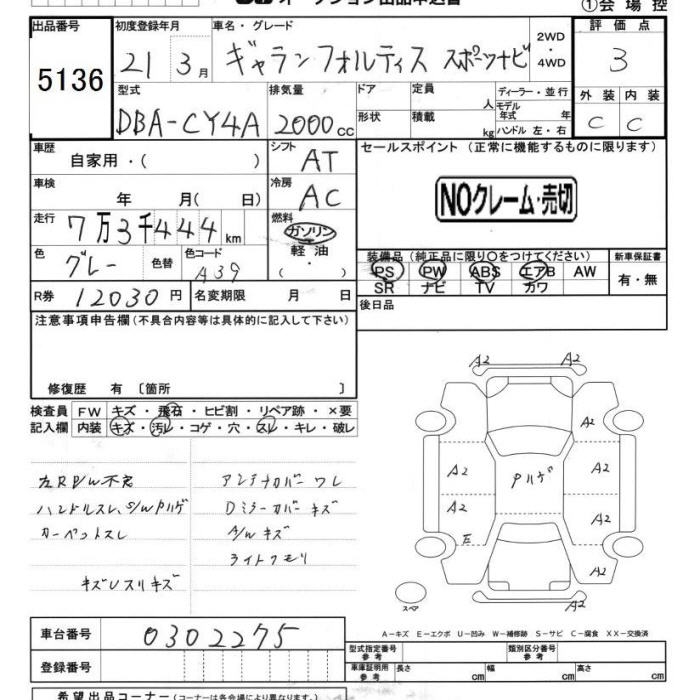 オークション出品申込書
①会場控
出品番号 5136
初度登録年月 21 3月
車名・グレード ギャランフォルティス スポーツナビ
2WD・4WD
評価点 3
型式 DBA-CY4A
排気量 2000cc
ドア 定員 人
形状 積載 kg
ディーラー・並行
モデル年式 年
ハンドル 左・右
外装 C 内装 C
車歴 自家用・( )
シフト AT
セールスポイント (正常に機能するものに限ります)
車検 年 月(日)
冷房 AC
NOクレーム・売切
走行 7万3千444km
燃料 ガソリン・軽油・( )
色 グレー 色替 色コード A39
装備品 (純正品に限り○をつけてください)
PS PW ABS エアB AW
SR ナビ TV カワ
新車保証書 有・無
R券 12030円 名変期限 月 日
後日品
注意事項申告欄 (不具合内容等は具体的に記入して下さい)
修復歴 有 〔箇所 〕
検査員記入欄
FW キズ・飛石・ヒビ割・リペア跡・×要
内装 キズ・汚レ・コゲ・穴・スレ・キレ・破レ
左RP/W不良
ハンドルスレ、S/Wハゲ
カーペットスレ
キズUスリキズ
アンテナカバーワレ
Dミラーカバーキズ
A/Wキズ
ライトクモリ
A2 A2
A2
A2 A2
A2 A2
E
A2
A2
スペア
A-キズ E-エクボ U-凹み W-補修跡 S-サビ C-腐食 XX-交換済
車台番号 0302275
登録番号
型式指定番号 参考 類別区分番号 参考
車庫証明用 参考 長さ cm 幅 cm 高さ cm
希望出品コーナー (コーナーは各会場により異なります。)